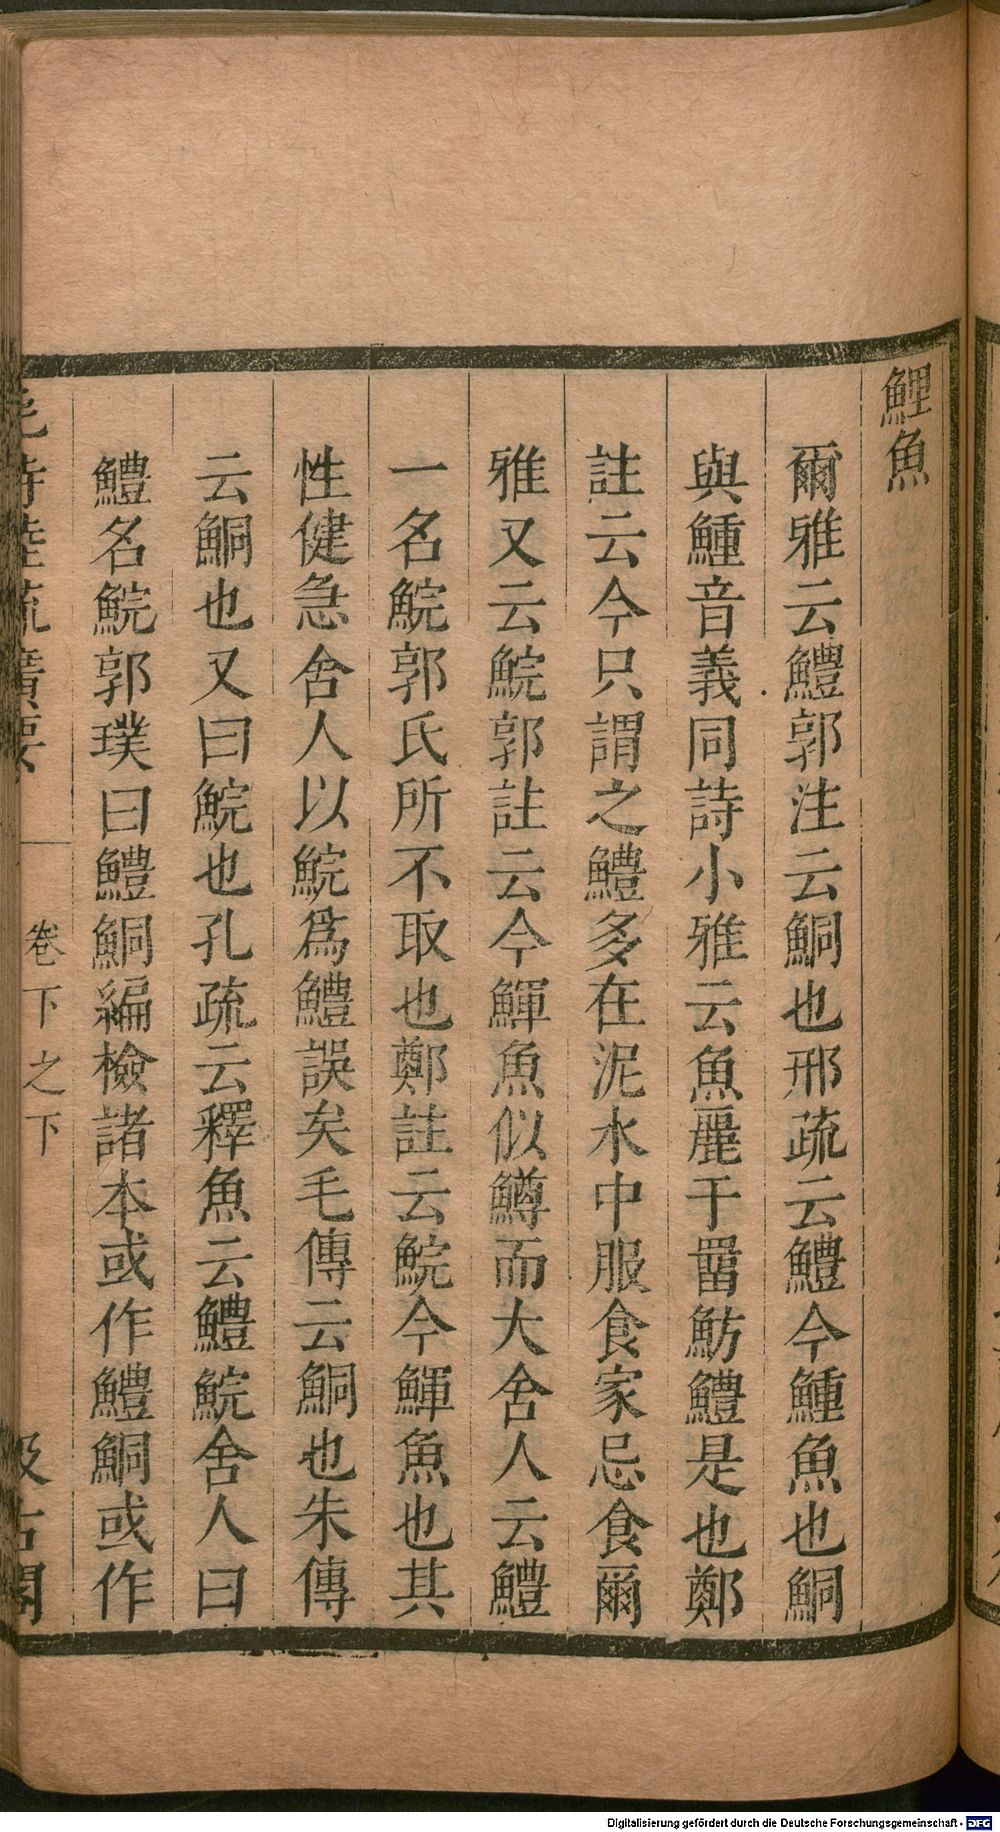 鯉魚
爾雅云鱧郭注云鮦也邢疏云鱧今鯶魚也鮦
與鯶音義同詩小雅云魚麗于罶魴鱧是也鄭
註云今只謂之鱧多在泥水中服食家忌食爾
雅又云鯇郭註云今鯶魚似鱒而大舍人云鱧
一名鯇郭氏所不取也鄭註云鯇今鯶魚也其
性健急舍人以鯇爲鱧誤矣毛傳云鮦也朱傳
云鮦也又曰鯇也孔疏云釋魚云鱧鯇舍人曰
鱧名鯇郭璞曰鱧鮦編檢諸本或作鱧鮦或作
毛詩陸疏廣要
卷下之下
汲古閣
Digitalisierung gefördert durch die Deutsche Forschungsgemeinschaft - DFG